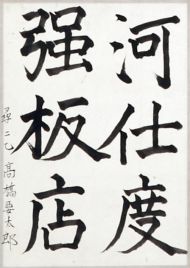 河仕度
强板店
尋二乙 高橋要太郎